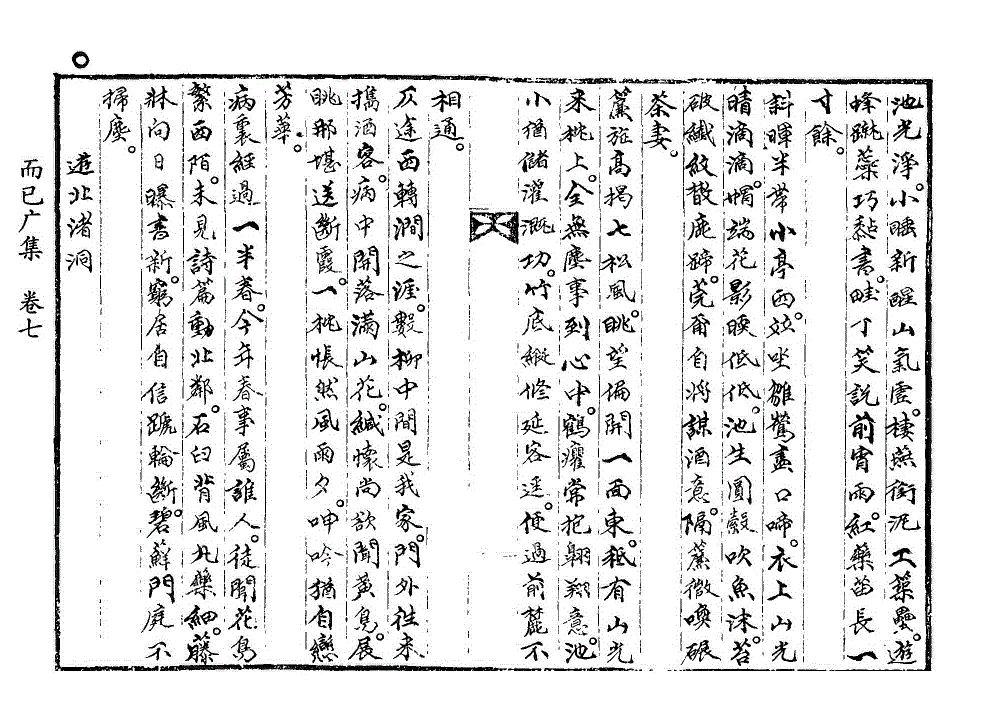 池光淨。小睡新醒山氣虛。棲燕銜泥工築壘。遊
蜂趯蘂巧黏書。畦丁笑說前宵雨。紅藥苗長一
寸餘。
斜暉半帶小亭西。竝坐雛鶯盡口啼。衣上山光
晴滴滴。帽端花影暎低低。池生圓縠吹魚沫。苔
破纖紋散鹿蹄。莞甭自將謀酒意。隔簾微喚碾
茶妻。
簾旌高揭七松風。眺望偏開一面東。秪有山光
來枕上。全無塵事到心中。鶴癯常抱翱翔意。池
小猶儲灌漑功。竹底縱修延客逕。便過前麓不
相通。
仄途西轉澗之涯。數柳中間是我家。門外往來
携酒客。病中開落滿山花。緘懷尚欲聞黃鳥。展
眺那堪送斷霞。一枕悵然風雨夕。呻吟猶自戀
芳華。
病裏經過一半春。今年春事屬誰人。徒聞花鳥
繁西陌。未見詩篇動北鄰。石臼背風丸藥細。藤
牀向日曝書新。窮居自信蹄輪斷。碧蘚門庭不
掃塵。
遊北渚洞
而已广集 卷七